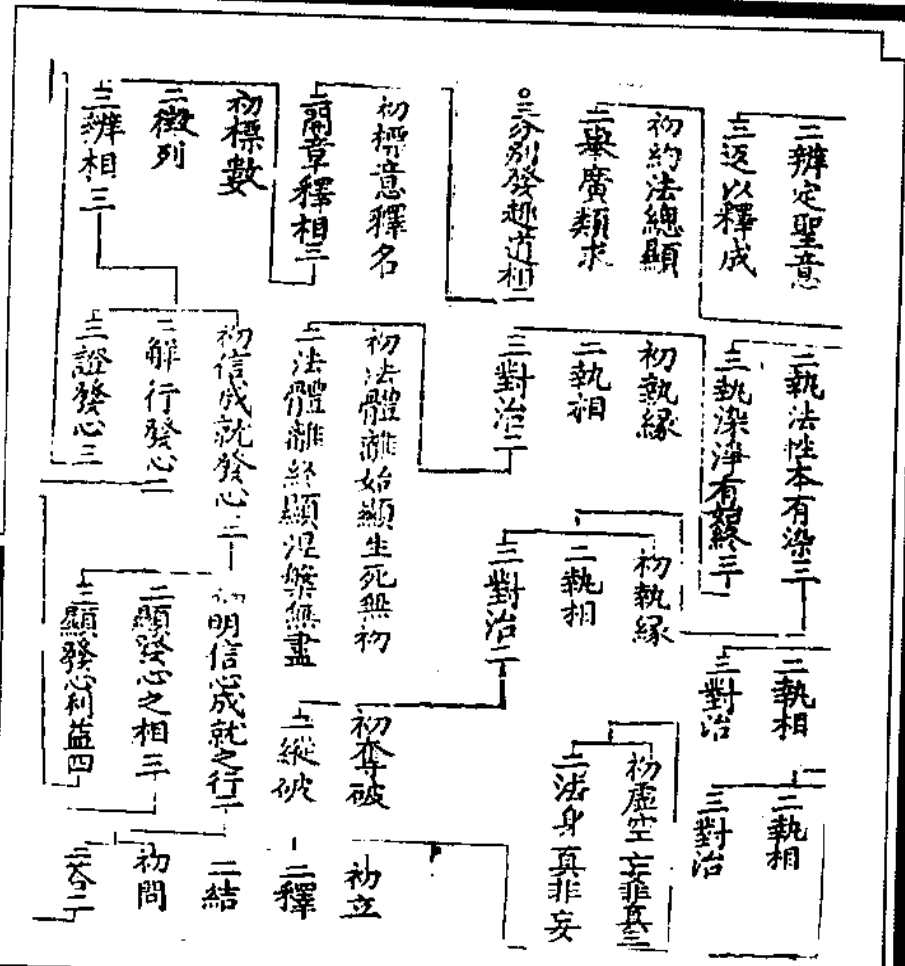 二辨定聖意
三返以釋成
初約法總顯
二舉廣類求
三分別發趣道相二
初標意釋名
二開章釋相三
初標數
二徵列
三辨相三
二執法性本有染三
三執染淨有始終三
初執緣
二執相
三對治二
初法體離始顯生死無初
二法體離終顯涅槃無盡
初信成就發心三
二解行發心二
三證發心三
二執相
三對治
初執緣
二執相
三對治二
初明信心成就之行二
二顯發心之相三
三顯發心利益四
二執相
三對治
初虛空妄非真三
二法身真非妄
初奪破
二縱破
初立
二釋
二結
初問
二答二